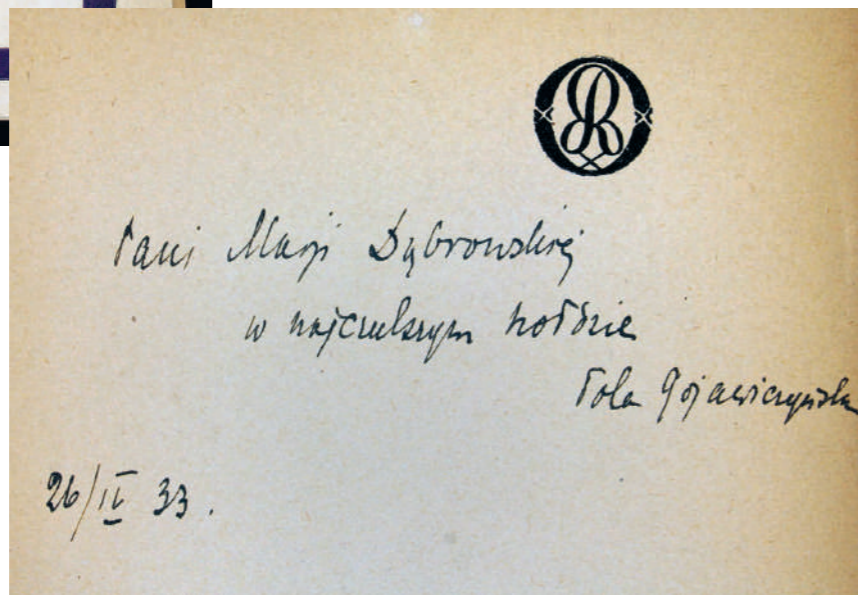 Pani Marji Dąbrowskiej
w najczulszym hołdzie
Pola Gojawiczyńska
26/IV 33.